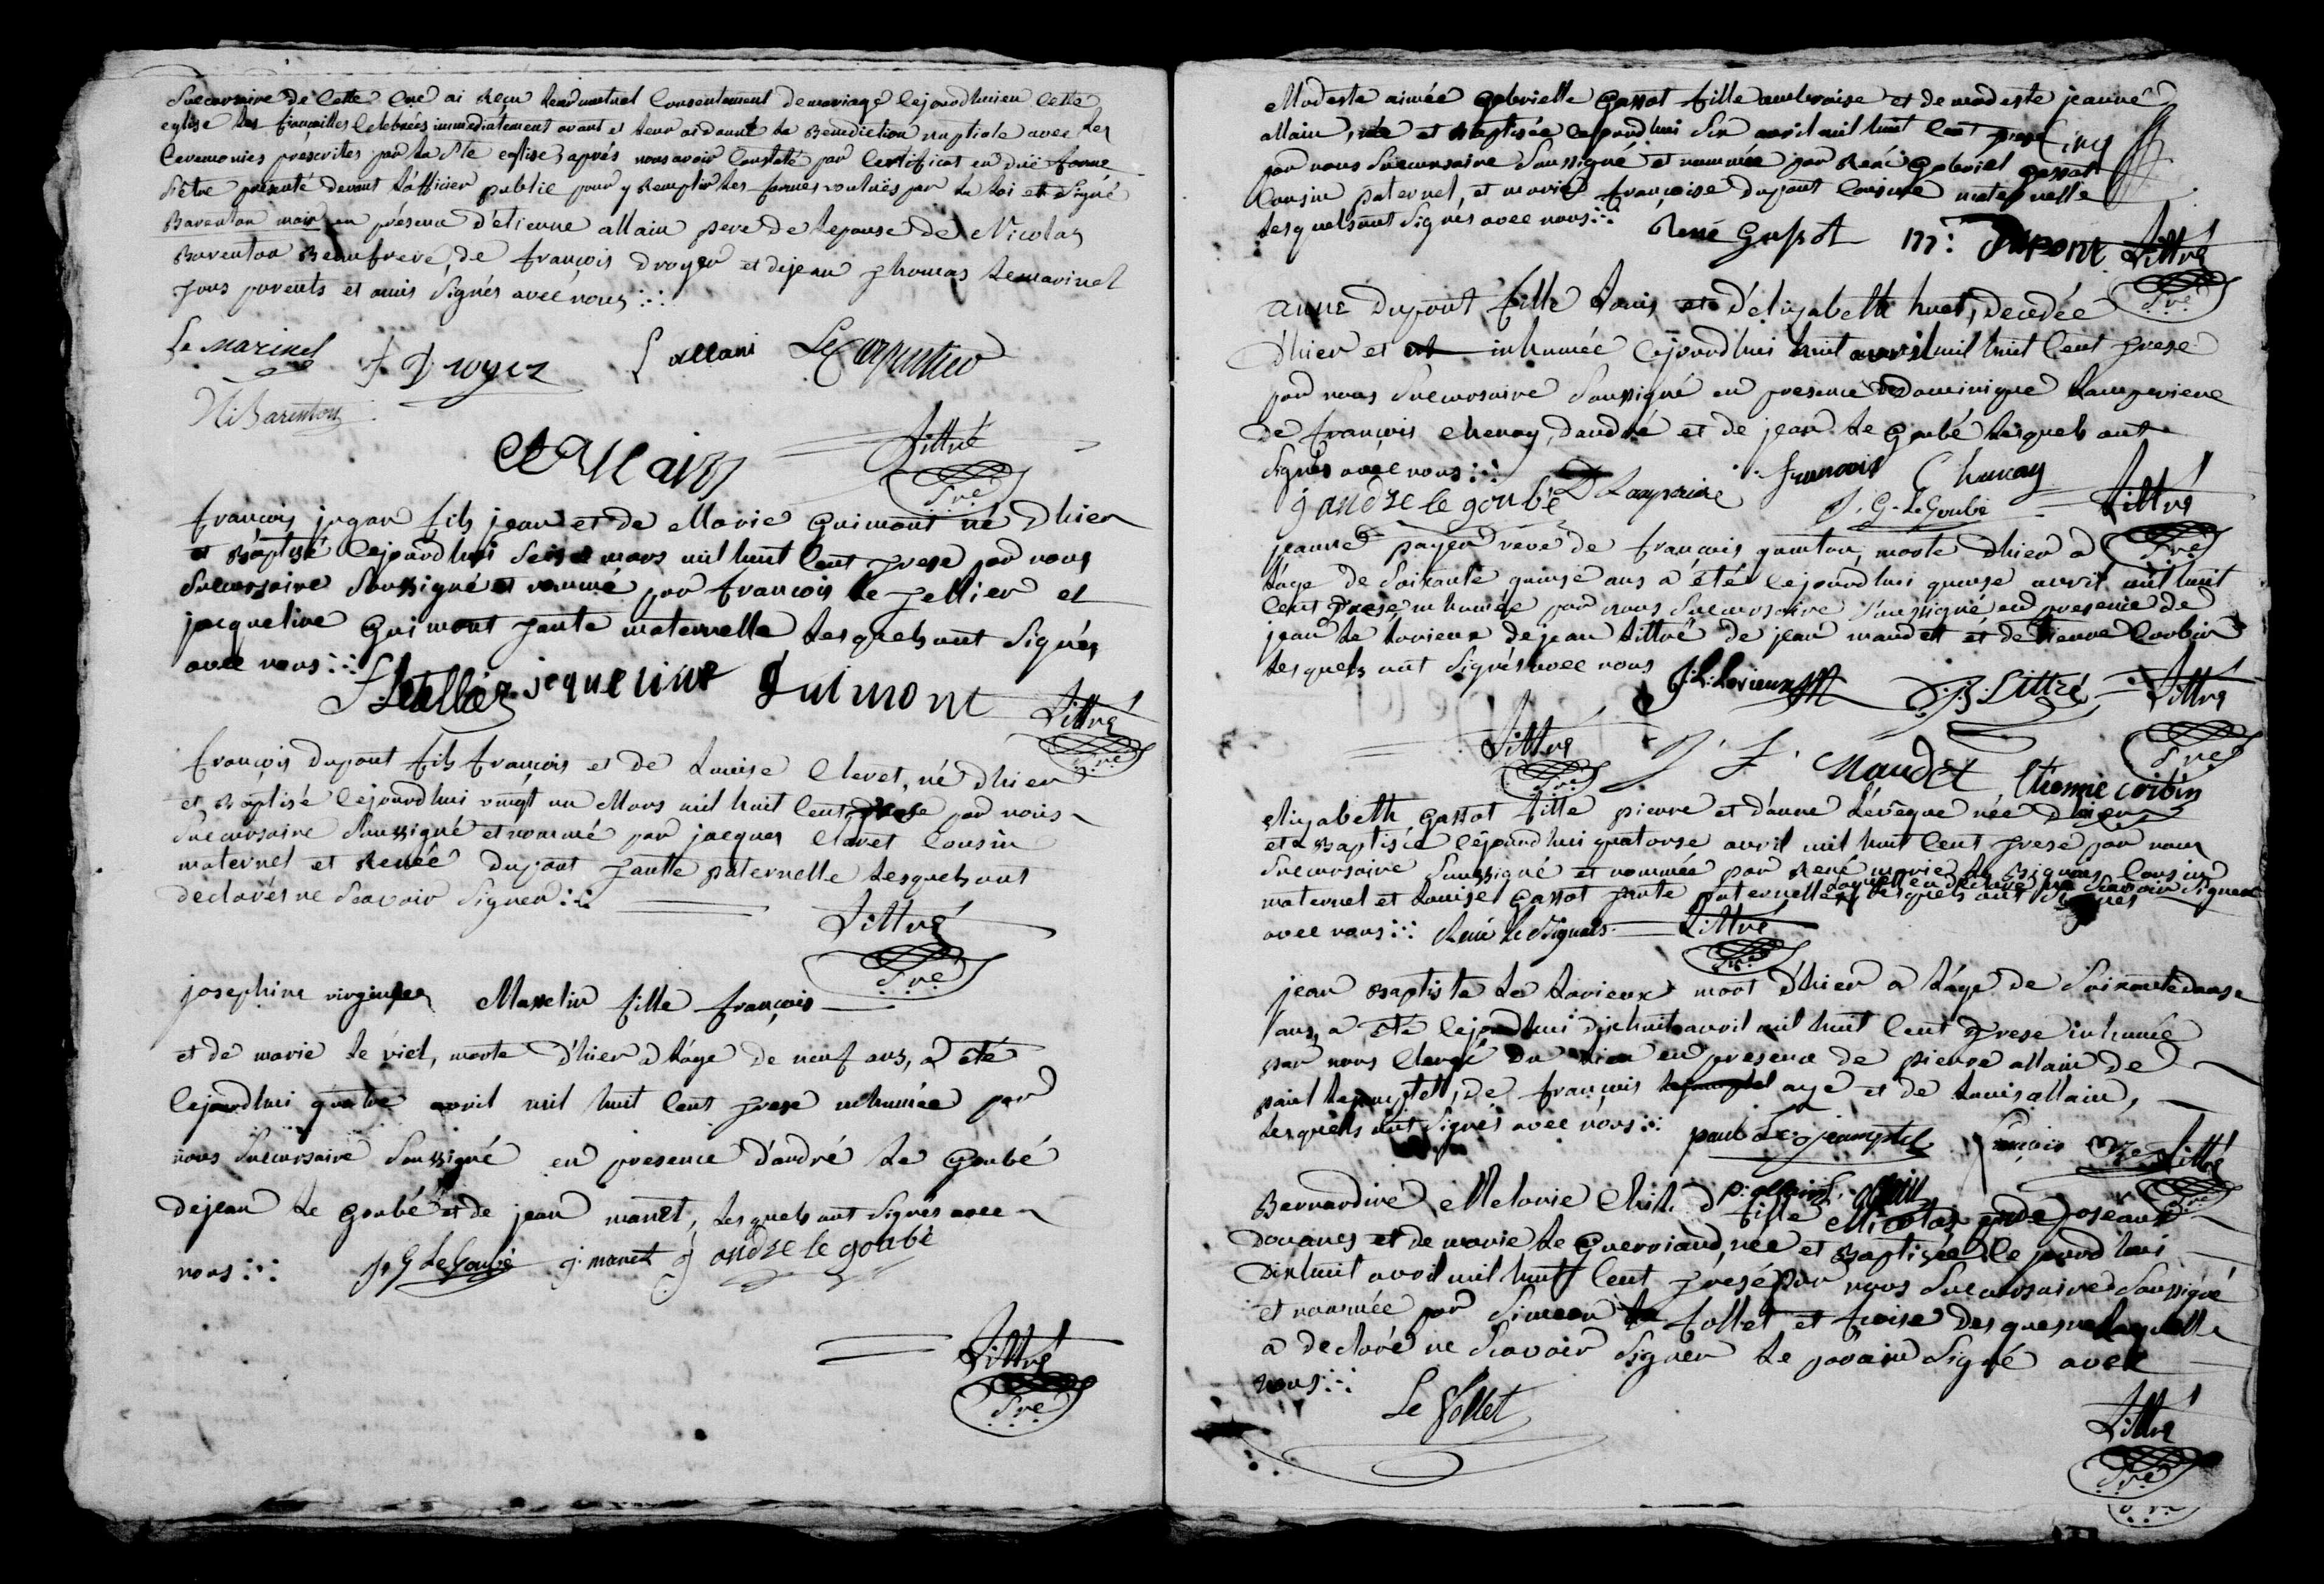 Succursaire de cette Cne ai Reçu leur mutuel Consentement de mariage cejourdhui en cette
eglise les fiançailles Celebrées immediatement avant et leur ai donné la Benediction nuptiale avec les
Ceremonies prescrites par la Ste eglise, aprés nous avoir Constaté par Certificat en due forme
S'être présenté devant L'officier public pour y Remplir les formes voulües par la Loi et Signé
Barenton maire en présence d'etienne allain pere de L'epouse de Nicolas
Barenton Beaufrere, de françois Droyer et de jean Thomas Lemarinel
Tous parents et amis Signés avec nous
Le marinel F Droyer L allain Le Carpentier
N Barenton
E Allain Littré
Sre
françois jugan fils jean et de Marie Guimont né d'hier
et Baptisé Cejourdhui Seise mars mil huit Cent Trese par nous
Succursaire Soussigné et nommé par françois Le Tellier et
jacqueline Guimont Tante maternelle Lesquels ont Signés
avec nous
F Letellier jaqueline Guimont Littré
Sre
françois dupont fils françois et de Louise Clavet, né d'hier
et Baptisé Cejourdhui vingt un Mars mil huit Cent Trese par nous
Succursaire Soussigné et nommé par jacques Clavet Cousin
maternel et Renée Dupont Tante paternelle Lesquels ont
declarés ne Scavoir Signer
Littré
Sre
josephine virginie Masselin fille françois
et de marie Le viel, morte d'hier a L'age de neuf ans, a été
Cejourdhui quatre avril mil huit Cent Trese inhumée par
nous Succursaire Soussigné en presence d'andré Le Goubé
de jean Le Goubé et de jean manet, Lesquels ont Signés avec
nous J G LeGoubé j. manet j andre le goubé
Littré
Sre
Modeste aimée Gabrielle Gassot fille ambroise et de modeste jeanne
allain, née et Baptisée Cejourdhui Six avril mil huit Cent Trese
par nous Succursaire Soussigné et nommée par René Gabriel Gassot
Cousin paternel, et marie françoise Dupont Cousine maternelle
Lesquels ont Signés avec nous René Gassot m: Dupont Littré
Sre
anne Dupont fille Louis et d'elizabeth huet, decedée
d'hier et inhumée Cejourdhui huit avril mil huit Cent Trese
par nous Succursaire Soussigné en presence de dominique Lamperiere
de françois Chenay, d'andré et de jean Le Goubé Lesquels ont
Signés avec nous
j andre le goubé françois Chenay J. G. LeGoubé Littré
Sre
jeanne payen veve de françois quinton, morte d'hier a
L'age de Soixante quinze ans a été Cejourdhui quinse avril mil huit
Cent Trese inhumée par nous Succursaire Soussigné en presence de
jean Le Lorieux de jean Littré de jean maudet et de tienne Corbin
Lesquels ont Signés avec nous J. L. Lorieux J. B. Littré Littré
Sre
Littré J. F. Maudet Etienne corbin
Sre
elizabeth Gassot fille pierre et d'anne L'évêque née d'hier
et Baptisée Cejourdhui quatorse avril mil huit Cent Trese par nous
Succursaire Soussigné et nommée par René marie Le Bignais Cousin
maternel et Louise Gassot Tante paternelle Lesquels ont Signés
avec nous René Le Bignais Littré
jean Baptiste Le Lorieux mort d'hier a L'age de Soixante douse
ans, a été Cejourdhui dixhuit avril mil huit Cent Trese inhumé
par nous Clergé du lieu en presence de pierre allain de
paul Lejamptel, de françois aze et de Louis allain,
Lesquels ont Signés avec nous paul Le jamptel françois aze Littré
P. allain L. allain Sre
Bernardine Melanie fille Nicolas
Douanes et de marie Le Guerriand, née et Baptisée Cejourdhui
Dixhuit avril mil huit Cent Trese par nous Succursaire Soussigné
et nommée par Simeon follet et foise Desquesnes Laquelle
a declaré ne Scavoir Signer Le parain Signé avec
nous
Le follet
Littré
Sre